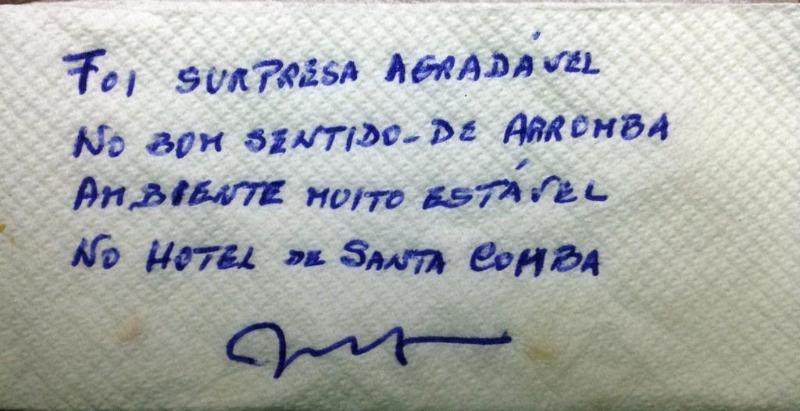 FOI SURPRESA AGRADÁVEL
NO BOM SENTIDO-DE ARROMBA
AMBIENTE MUITO ESTÁVEL
NO HOTEL DE SANTA COMBA